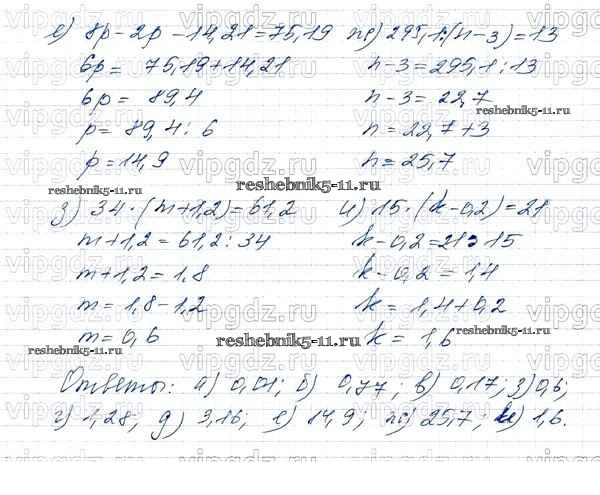 е) 8p - 2p - 14,21 = 75,19
6p = 75,19 + 14,21
6p = 89,4
p = 89,4 : 6
p = 14,9
ж) 295,1 : (n - 3) = 13
n - 3 = 295,1 : 13
n - 3 = 22,7
n = 22,7 + 3
n = 25,7
з) 34 · (m + 1,2) = 61,2
m + 1,2 = 61,2 : 34
m + 1,2 = 1,8
m = 1,8 - 1,2
m = 0,6
и) 15 · (k - 0,2) = 21
k - 0,2 = 21 : 15
k - 0,2 = 1,4
k = 1,4 + 0,2
k = 1,6
Ответы: а) 0,01; б) 0,77; в) 0,17; з) 0,6;
г) 1,28; д) 3,16; е) 14,9; ж) 25,7; и) 1,6.
reshebnik5-11.ru
reshebnik5-11.ru
reshebnik5-11.ru
reshebnik5-11.ru
reshebnik5-11.ru
reshebnik5-11.ru
reshebnik5-11.ru
vipgdz.ru